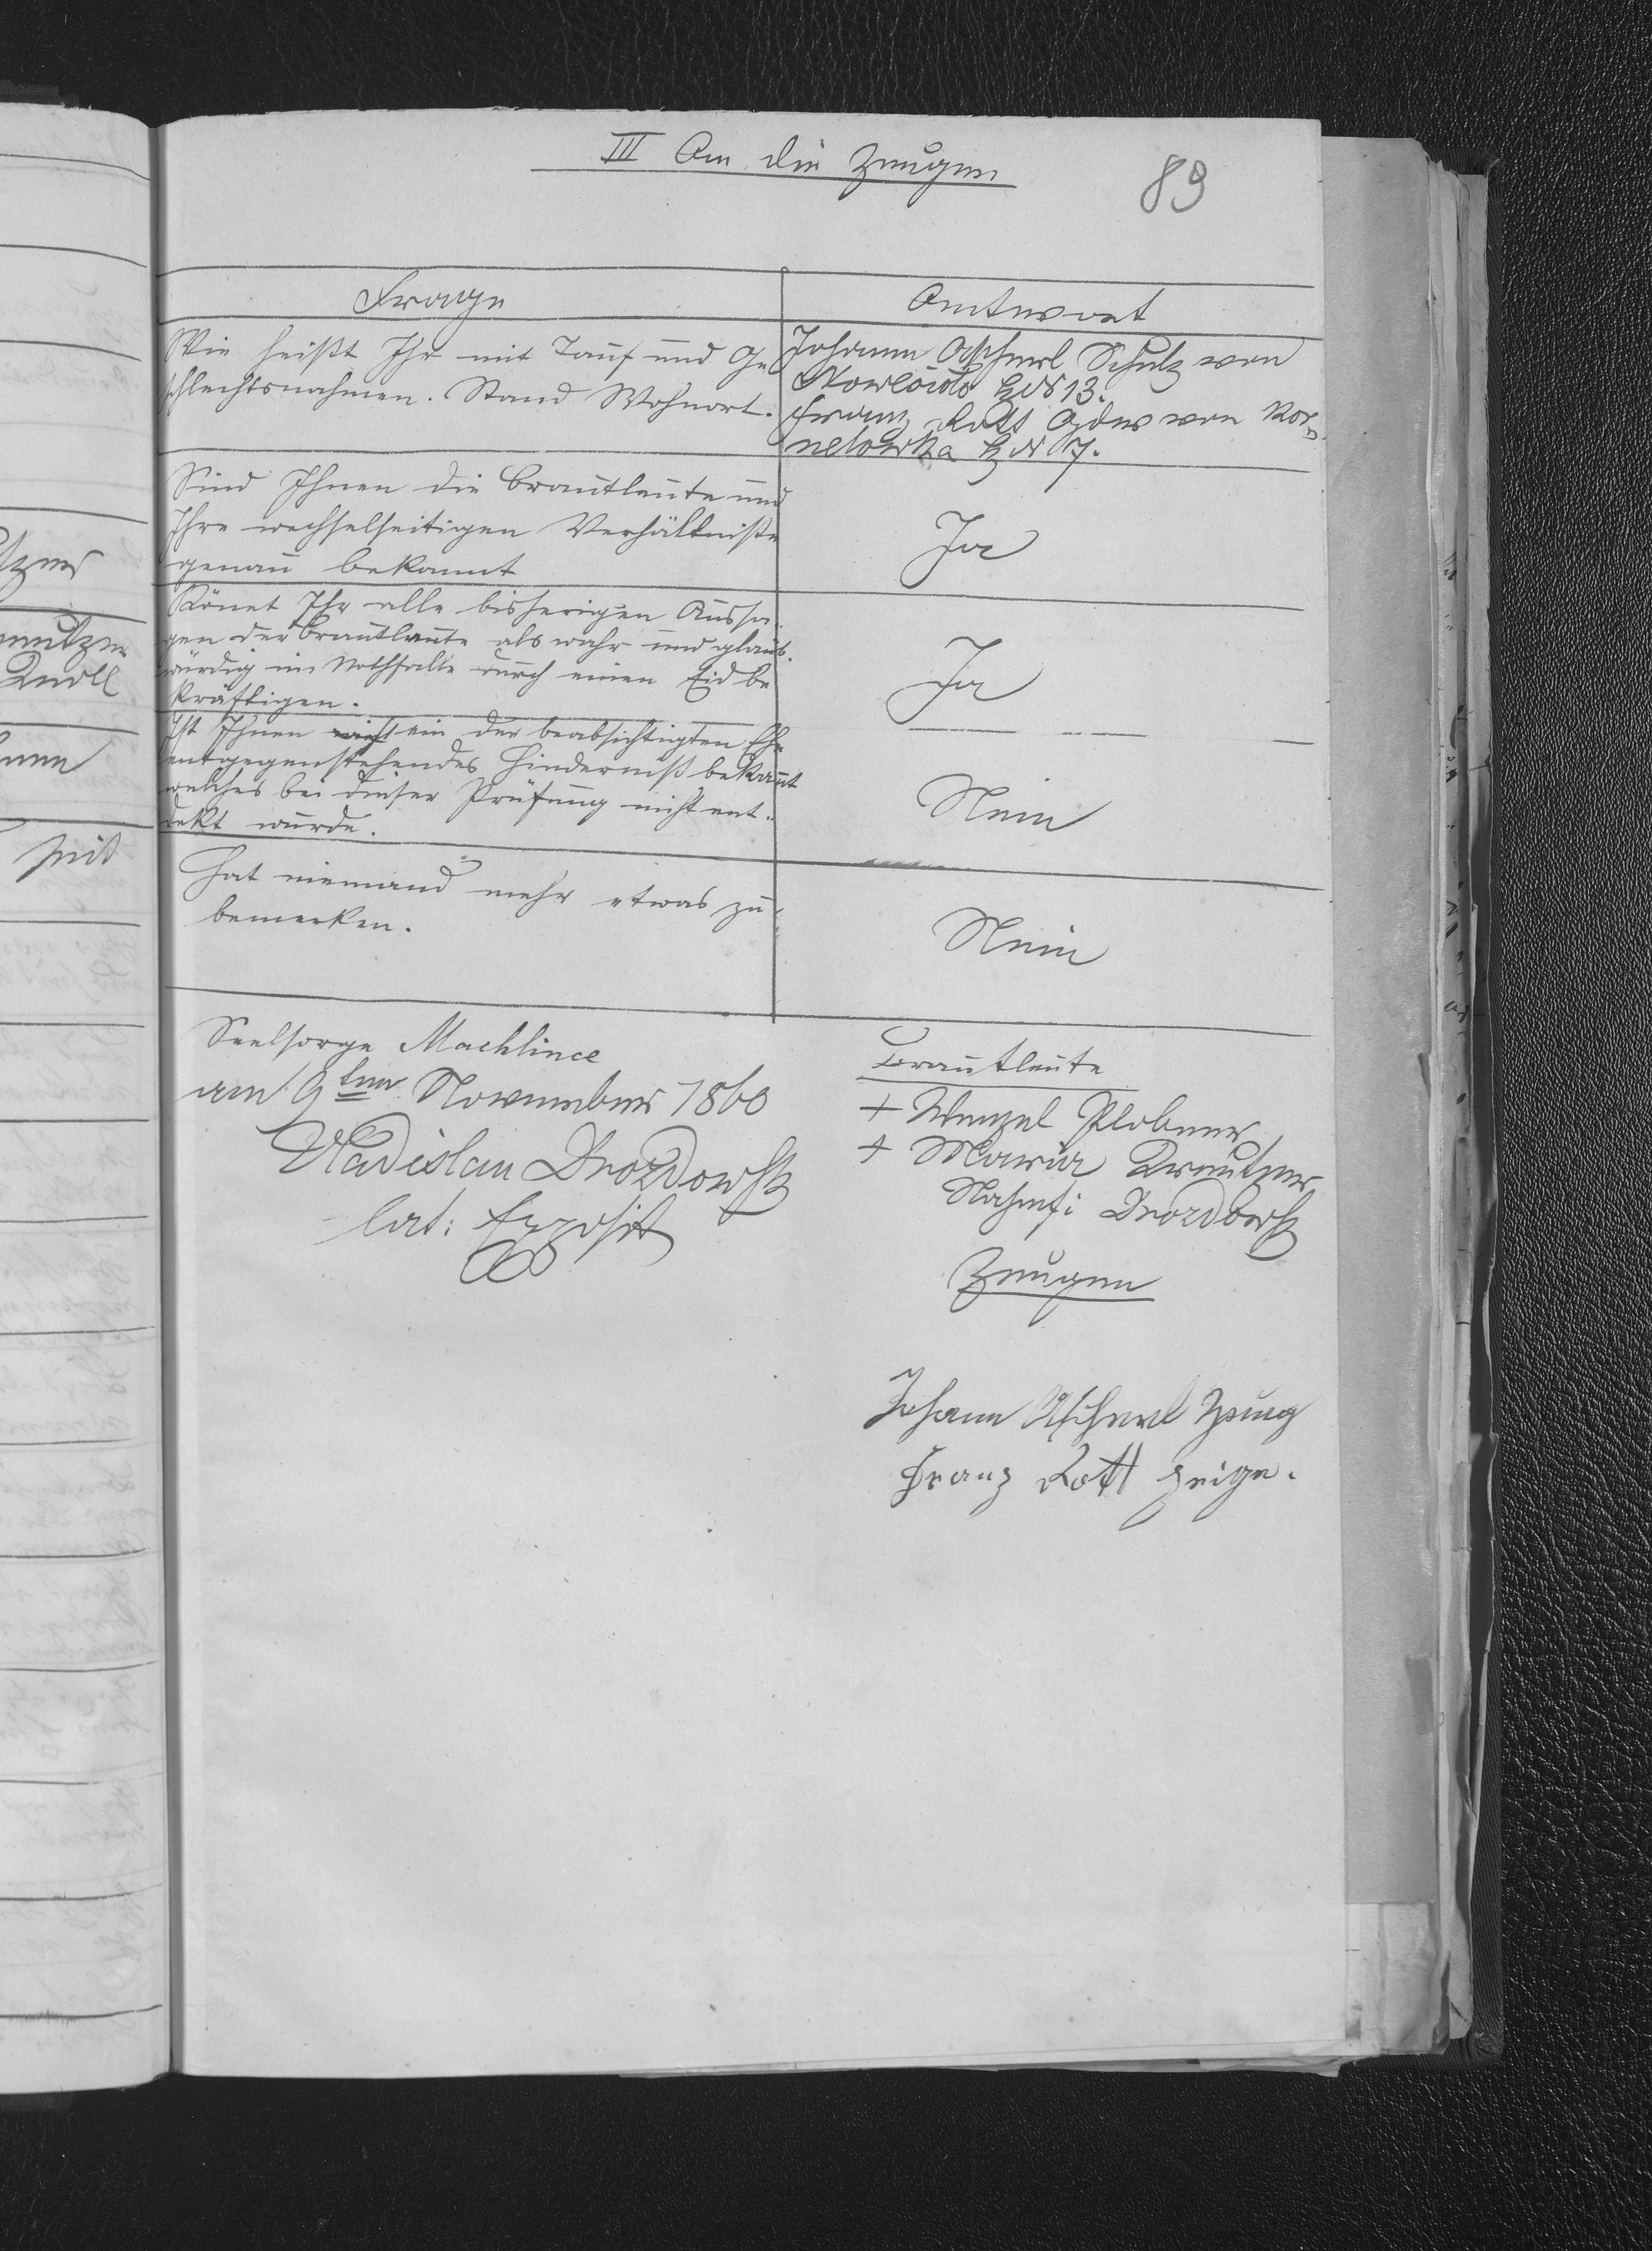 III An die Zeugen
89
Frage
Antwort
Wie heißt Ihr mit Tauf und Ge
schlechtsnahmen. Stand Wohnort.
Johann Ascherl Schulz von
HN 13.
Franz Rott von Kor=
nelowka HN 7.
Sind Ihnen die Brautleute und
Ihre wechselseitigen Verhältniße
genau bekannt
Ja
Könet Ihr alle bisherigen Aussa
gen der Brautleute als wahr und glaub.
würdig im Nothfalle durch einen Eid be
kräftigen.
Ja
Ist Ihnen nicht ein der beabsichtigten Ehe
entgegenstehendes Hinderniß bekannt
welches bei dieser Prüfung nicht ent-
dekt wurde.
Nein
Hat niemand mehr etwas zu
bemerken.
Nein
Seelsorge Machlince
am 9ten November 1860
Vladislau Drozdowski
lat: Exposit
Brautleute
+ Wenzel Plobner
+ Maria Kreutzer
Nahmf: Drozdowski
Zeugen
Johann Ascherl Zeug
Franz Rott zeige.
tzer
mit